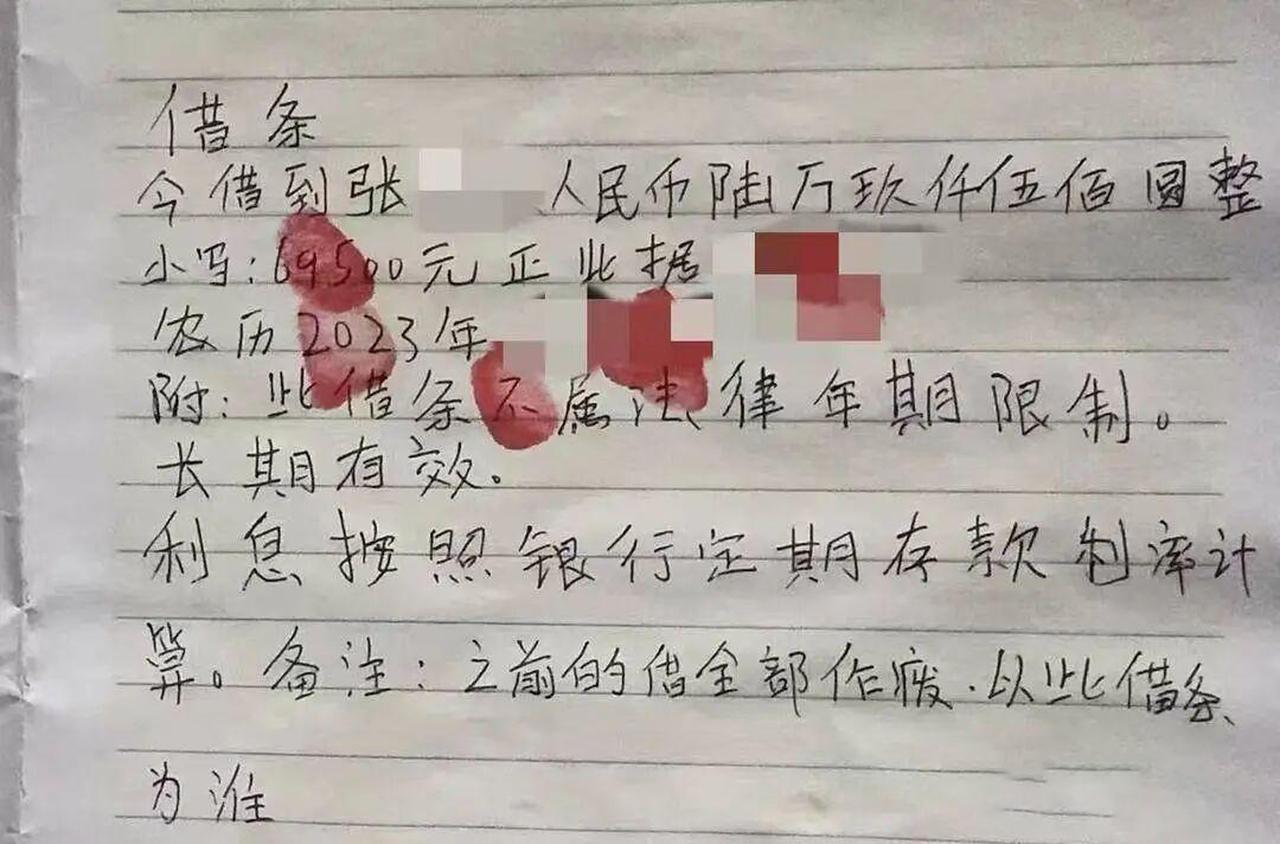 借条
今借到张 人民币陆万玖仟伍佰圆整
小写:69500元正 此据
农历2023年
附:此借条不属法律年期限制。
长期有效。
利息按照银行定期存款利率计
算。备注:之前的借全部作废.以此借条
为准